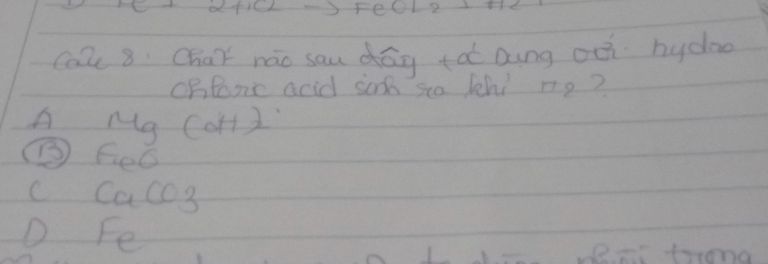 2HCl -> FeCl2 + H2
Câu 8. Chất nào sau đây tác dụng với hydro
chloric acid sinh ra khí H2?
A Mg(OH)2
B FeO
C CaCO3
D Fe
trong